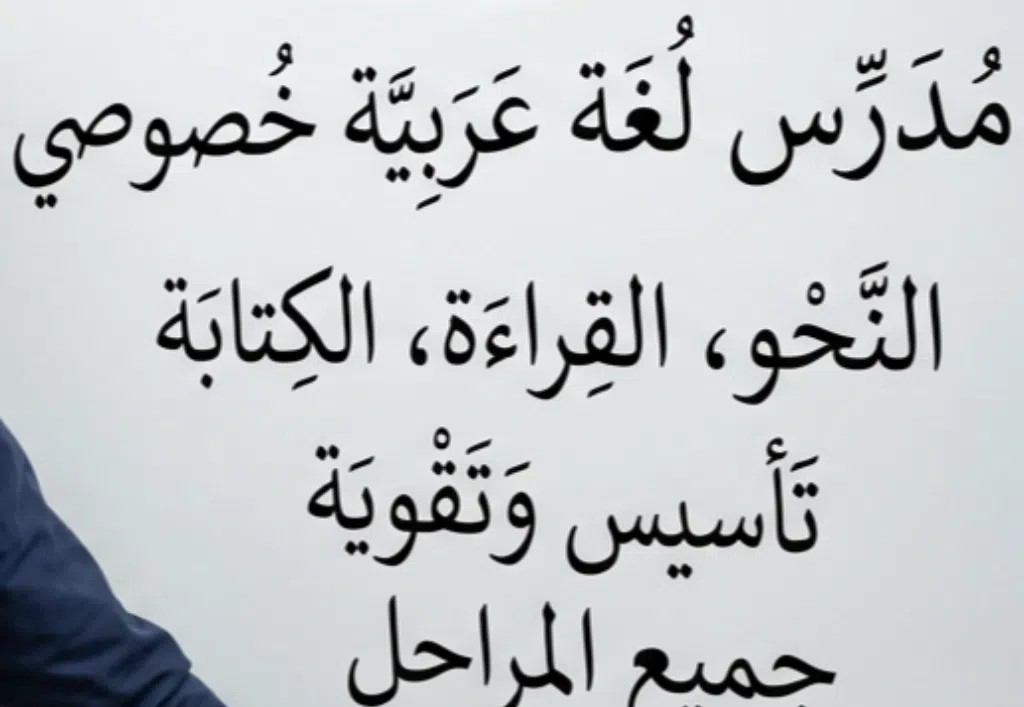 مُدَرِّس لُغَة عَرَبِيَّة خُصوصي
النَّحْو، القِراءَة، الكِتابَة
تَأسيس وَتَقْويَة
جميع المراحل